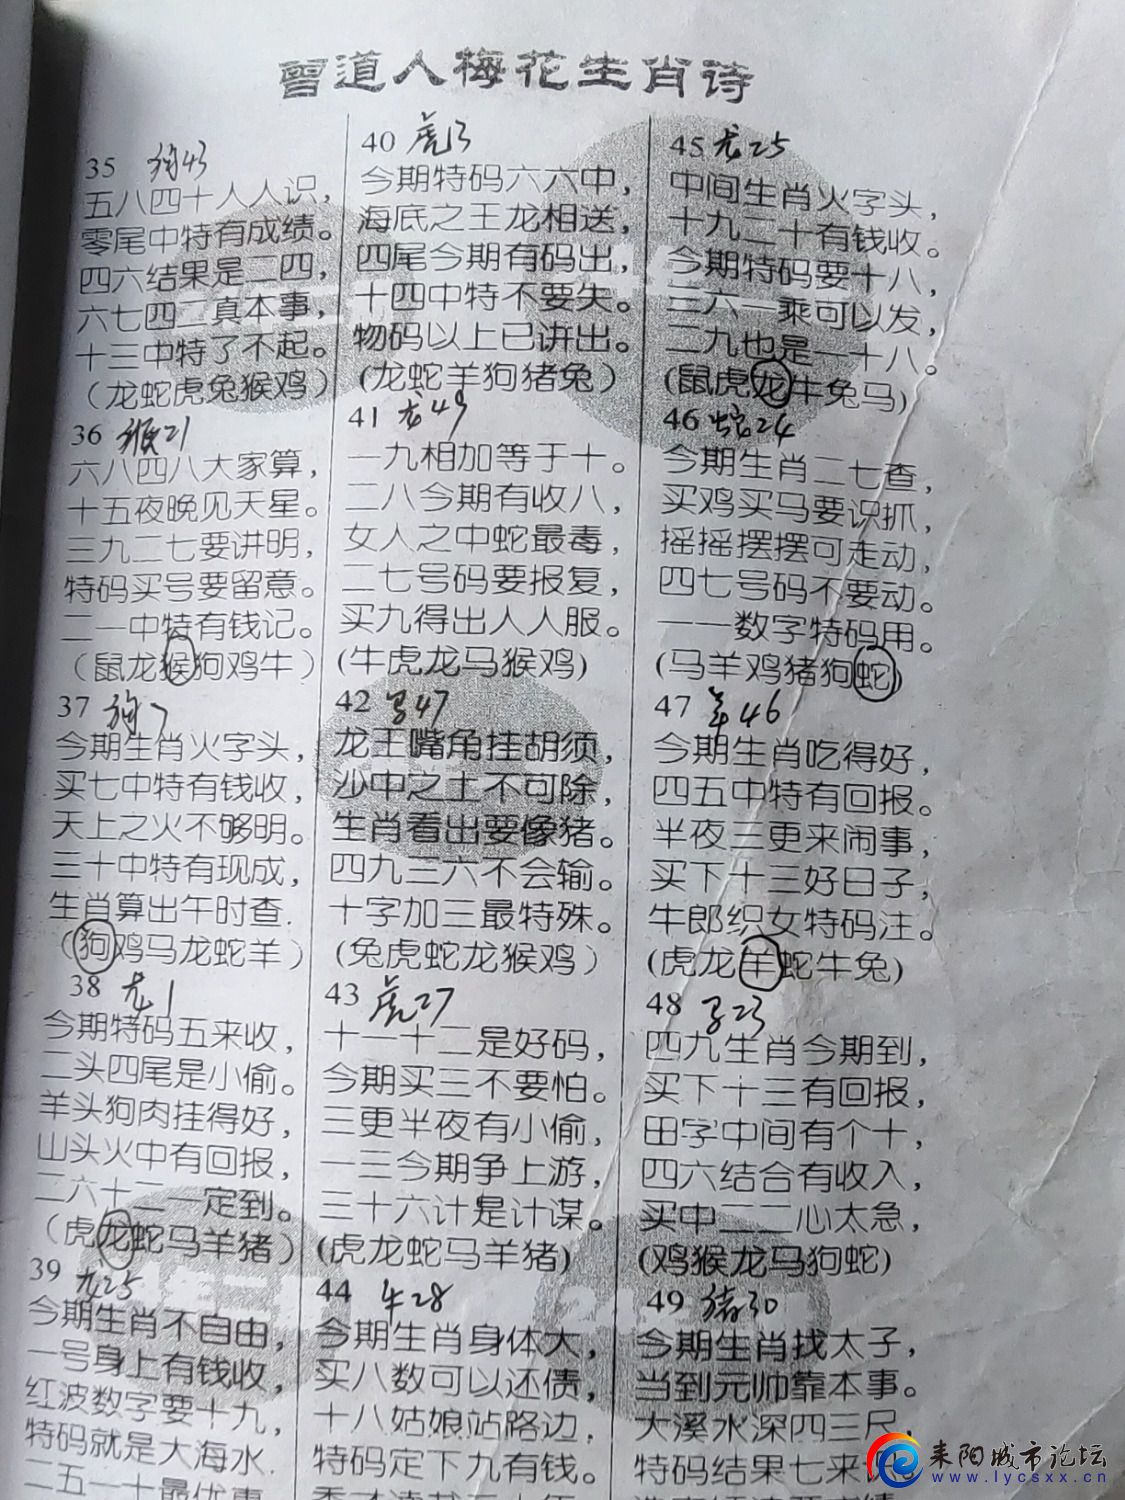 曾道人梅花生肖诗
35 狗43
五八四十人人识，
零尾中特有成绩。
四六结果是二四，
六七四二真本事，
十三中特了不起。
（龙蛇虎兔猴鸡）
36 猴21
六八四八大家算，
十五夜晚见天星。
三九二七要讲明，
特码买号要留意。
二一中特有钱记。
（鼠龙猴狗鸡牛）
37 狗7
今期生肖火字头，
买七中特有钱收，
天上之火不够明。
三十中特有现成，
生肖算出午时查.
（狗鸡马龙蛇羊）
38 龙1
今期特码五来收，
二头四尾是小偷。
羊头狗肉挂得好，
山头火中有回报，
二六十二一定到。
（虎龙蛇马羊猪）
39 龙25
今期生肖不自由，
一号身上有钱收，
红波数字要十九，
特码就是大海水.
二五一十最优惠
40 虎3
今期特码六六中，
海底之王龙相送，
四尾今期有码出，
十四中特不要失。
物码以上已讲出。
（龙蛇羊狗猪兔）
41 龙49
一九相加等于十。
二八今期有收八，
女人之中蛇最毒，
二七号码要报复，
买九得出人人服。
(牛虎龙马猴鸡)
42 马47
龙王嘴角挂胡须，
沙中之土不可除，
生肖看出要像猪。
四九三六不会输。
十字加三最特殊。
(兔虎蛇龙猴鸡)
43 虎27
十一十二是好码，
今期买三不要怕。
三更半夜有小偷，
一三今期争上游，
三十六计是计谋。
(虎龙蛇马羊猪)
44 牛28
今期生肖身体大，
买八数可以还债，
十八姑娘站路边，
特码定下九有钱。
45 龙25
中间生肖火字头，
十九二十有钱收。
今期特码要十八，
三六一乘可以发，
二九也是一十八。
(鼠虎龙牛兔马)
46 蛇24
今期生肖二七查，
买鸡买马要识抓，
摇摇摆摆可走动，
四七号码不要动。
一一数字特码用。
(马羊鸡猪狗蛇)
47 羊46
今期生肖吃得好，
四五中特有回报。
半夜三更来闹事，
买下十三好日子，
牛郎织女特码注。
(虎龙羊蛇牛兔)
48 马23
四九生肖今期到，
买下十三有回报，
田字中间有个十，
四六结合有收入，
买中二二心太急，
(鸡猴龙马狗蛇)
49 猪30
今期生肖找太子，
当到元帅靠本事。
大溪水深四三尺，
特码结果七来
耒阳城市论坛
www.lycsxx.cn